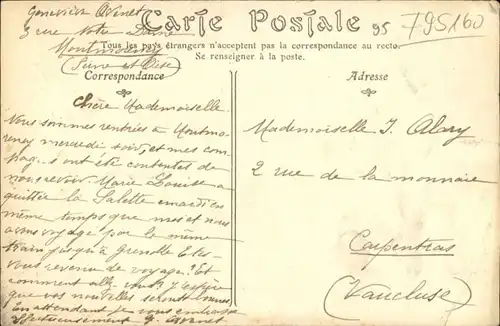 Geneviève
3 rue Notre Dame
Montmorency
(Seine et Oise)
Carte Postale
95
F95160
Tous les pays étrangers n'acceptent pas la correspondance au recto.
Se renseigner à la poste.
Correspondance
Chère Mademoiselle
Nous sommes rentrées à Montmo-
rency mercredi soir, et mes com-
pag. ont été contentes de
nous revoir Marie Louise a
quittée la Salette mardi en
même temps que mes et nous
avons voyagé par le même
train jusqu'à Grenoble Etes-
vous revenue de voyage? Et
comment allez-vous? J'espère
que vos nouvelles seront bonnes
En attendant je vous embrasse
affectueusement G.
Adresse
Mademoiselle J. Alary
2 rue de la monnaie
Carpentras
(Vaucluse)